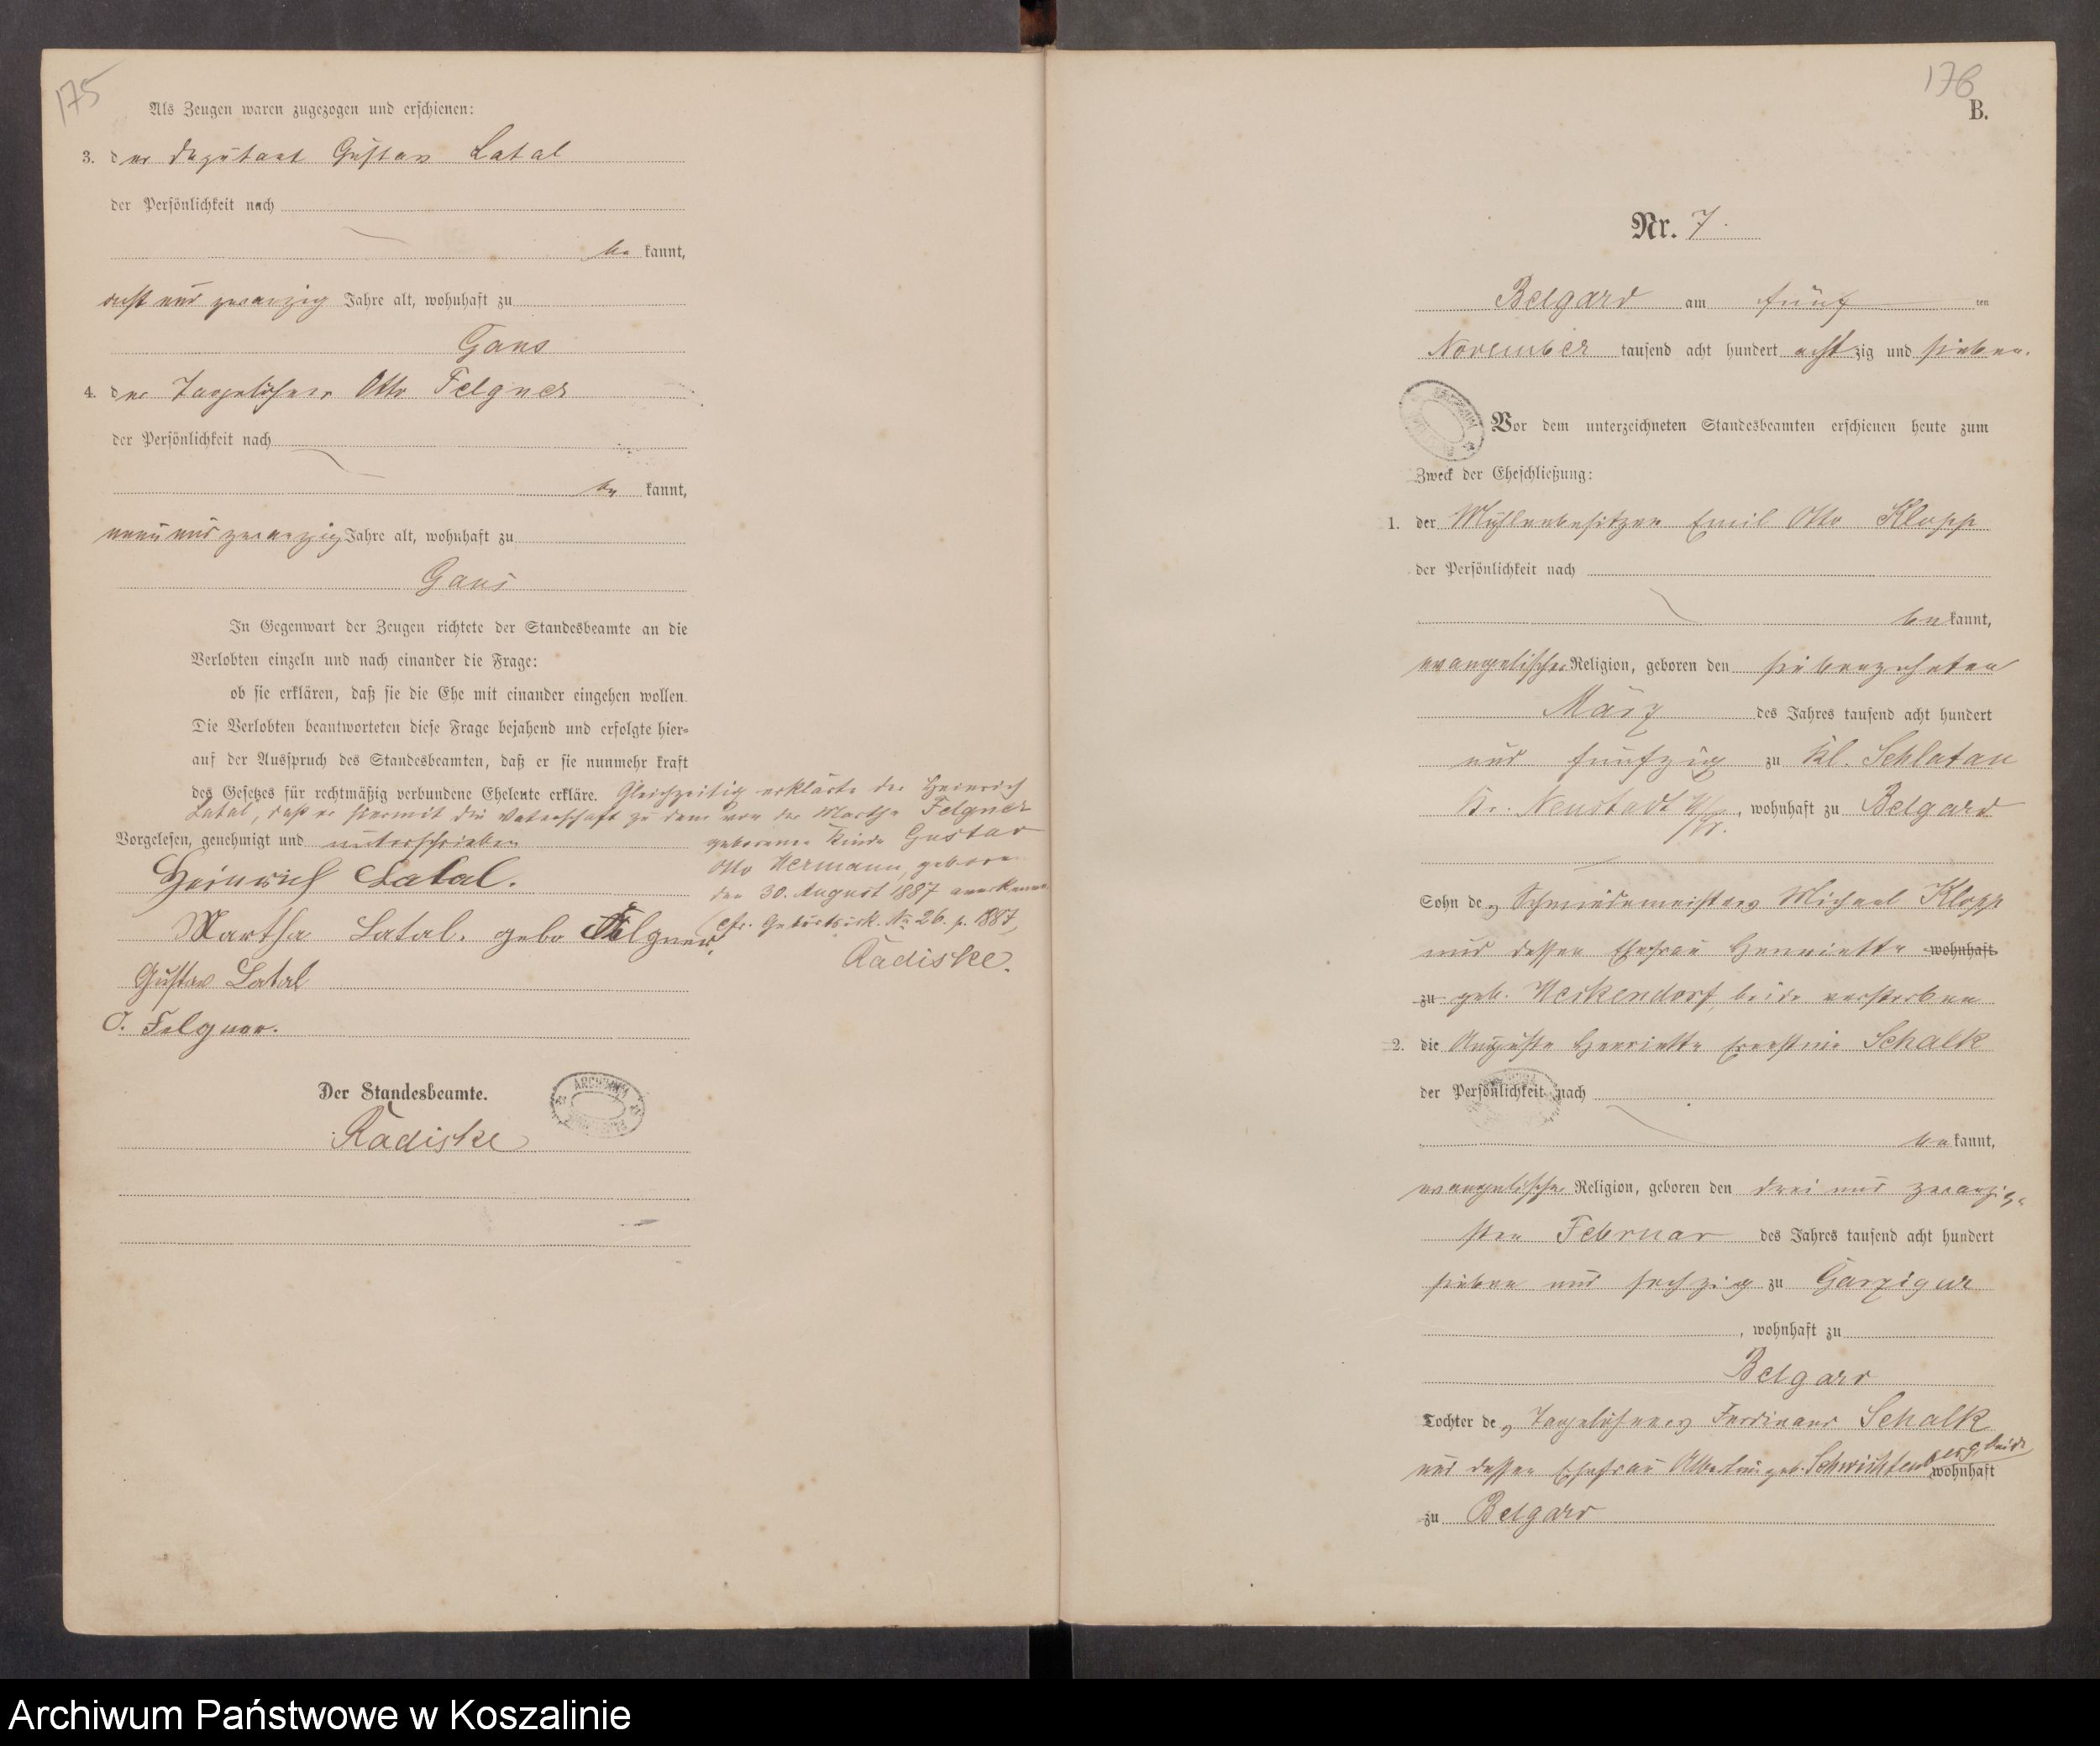 175
Als Zeugen waren zugezogen und erschienen:
3. der Deputant Gustav Latal
der Persönlichkeit nach
be kannt,
acht und zwanzig Jahre alt, wohnhaft zu
Gans
4. der Tagelöhner Otto Felgner
der Persönlichkeit nach
be kannt,
neun und zwanzig Jahre alt, wohnhaft zu
Gans
In Gegenwart der Zeugen richtete der Standesbeamte an die
Verlobten einzeln und nach einander die Frage:
ob sie erklären, daß sie die Ehe mit einander eingehen wollen.
Die Verlobten beantworteten diese Frage bejahend und erfolgte hier-
auf der Ausspruch des Standesbeamten, daß er sie nunmehr kraft
des Gesetzes für rechtmäßig verbundene Eheleute erkläre. Gleichzeitig erklärte der Heinrich
Latal, daß er hiermit die Vaterschaft zu dem von der Martha Felgner
geborenen Kinde Gustav
Otto Hermann, geboren
den 30. August 1887 anerkenne
cfr. Geburtsurk. No 26. p. 1887,
Radiske.
Vorgelesen, genehmigt und unterschrieben
Heinrich Latal.
Martha Latal. gebo Felgner.
Gustav Latal
O. Felgner.
Der Standesbeamte.
Radiske
ARCHIWUM
176
B.
Nr. 7.
Belgard am fünf ten
November tausend acht hundert acht zig und sieben.
Vor dem unterzeichneten Standesbeamten erschienen heute zum
Zweck der Eheschließung:
1. der Mühlenbesitzer Emil Otto Klopp
der Persönlichkeit nach
be kannt,
evangelischer Religion, geboren den siebenzehnten
März des Jahres tausend acht hundert
und fünfzig zu Kl. Schlatau
Kr. Neustadt W/Pr., wohnhaft zu Belgard
Sohn des Schmiedemeisters Michael Klopp
und dessen Ehefrau Henriette wohnhaft
zu geb. Heckendorf, beide verstorben
2. die Auguste Henriette Ernstine Schalk
der Persönlichkeit nach
be kannt,
evangelischer Religion, geboren den drei und zwanzig-
sten Februar des Jahres tausend acht hundert
sieben und sechzig zu Garzigar
, wohnhaft zu
Belgard
Tochter des Tagelöhners Ferdinand Schalk
und dessen Ehefrau Albertine geb. Schwichtenberg, beide wohnhaft
zu Belgard
Archiwum Państwowe w Koszalinie